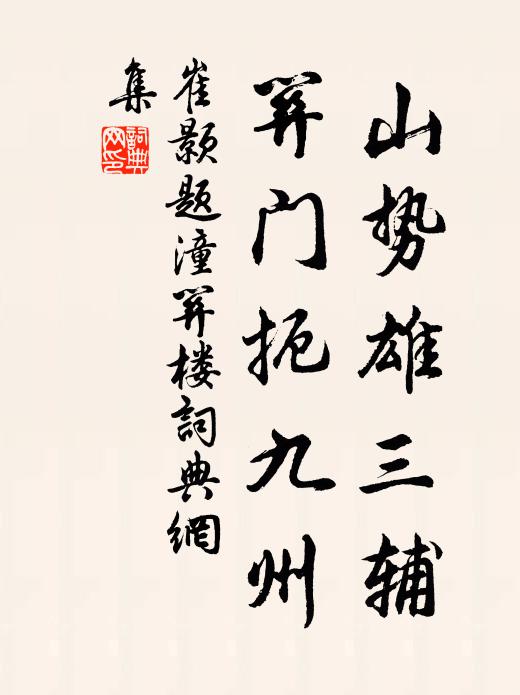 山势雄三辅
関门扼九州
崔颢题潼関楼詞典網
集
詞典网印